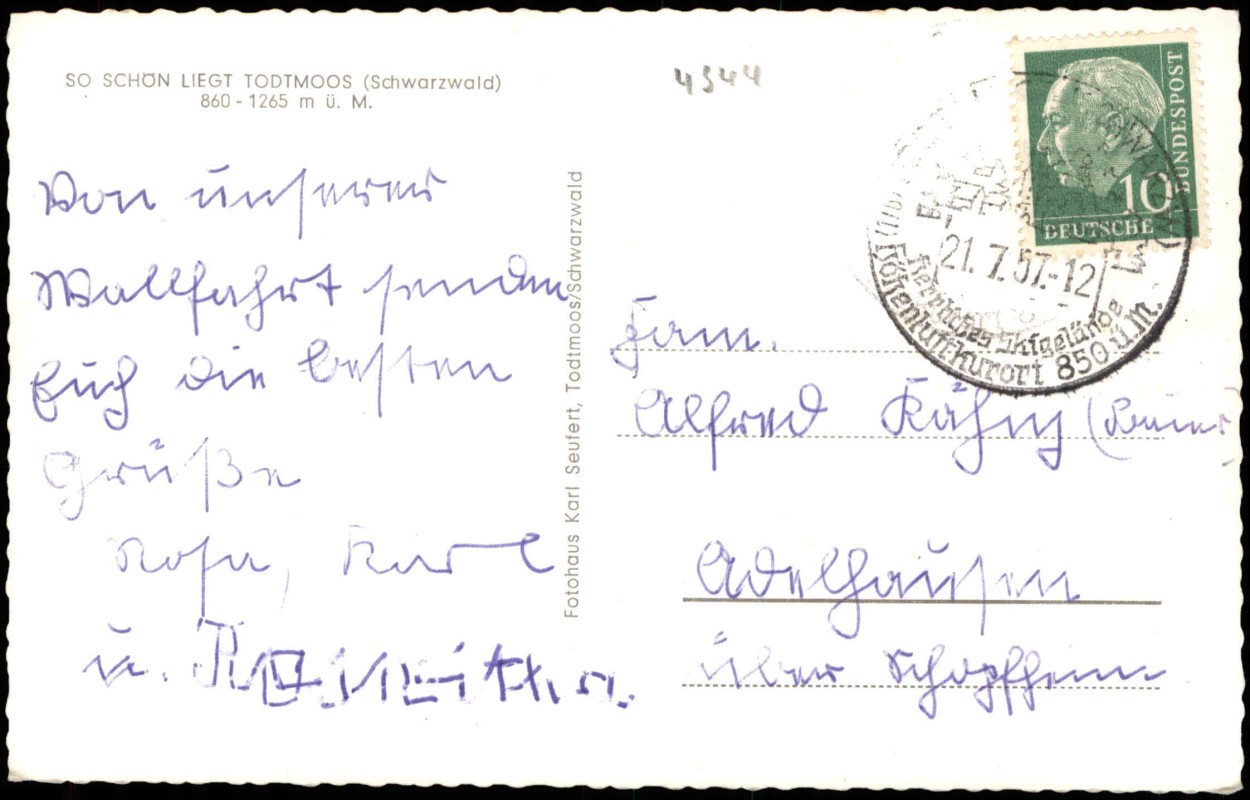 SO SCHÖN LIEGT TODTMOOS (Schwarzwald)
860 - 1265 m ü. M.
4544
Von unserer
Wallfahrt senden
Euch die besten
Grüße
Rosa, Karl
u.
Fotohaus Karl Seufert, Todtmoos/Schwarzwald
10
DEUTSCHE
BUNDESPOST
21.7.57.-12
Herrliches Skigelände
Höhenluftkurort 850 ü.M.
Fam.
Alfred
Adelhausen
über Schopfheim